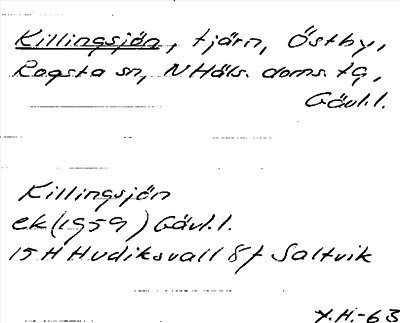 Killingsjön, tjärn, Östby,
Rogsta sn, N Häls. doms. tg,
Gävl.l.
Killingsjön
ek (1959) Gävl.l.
15 H Hudiksvall 8 f Saltvik
X.H.-63